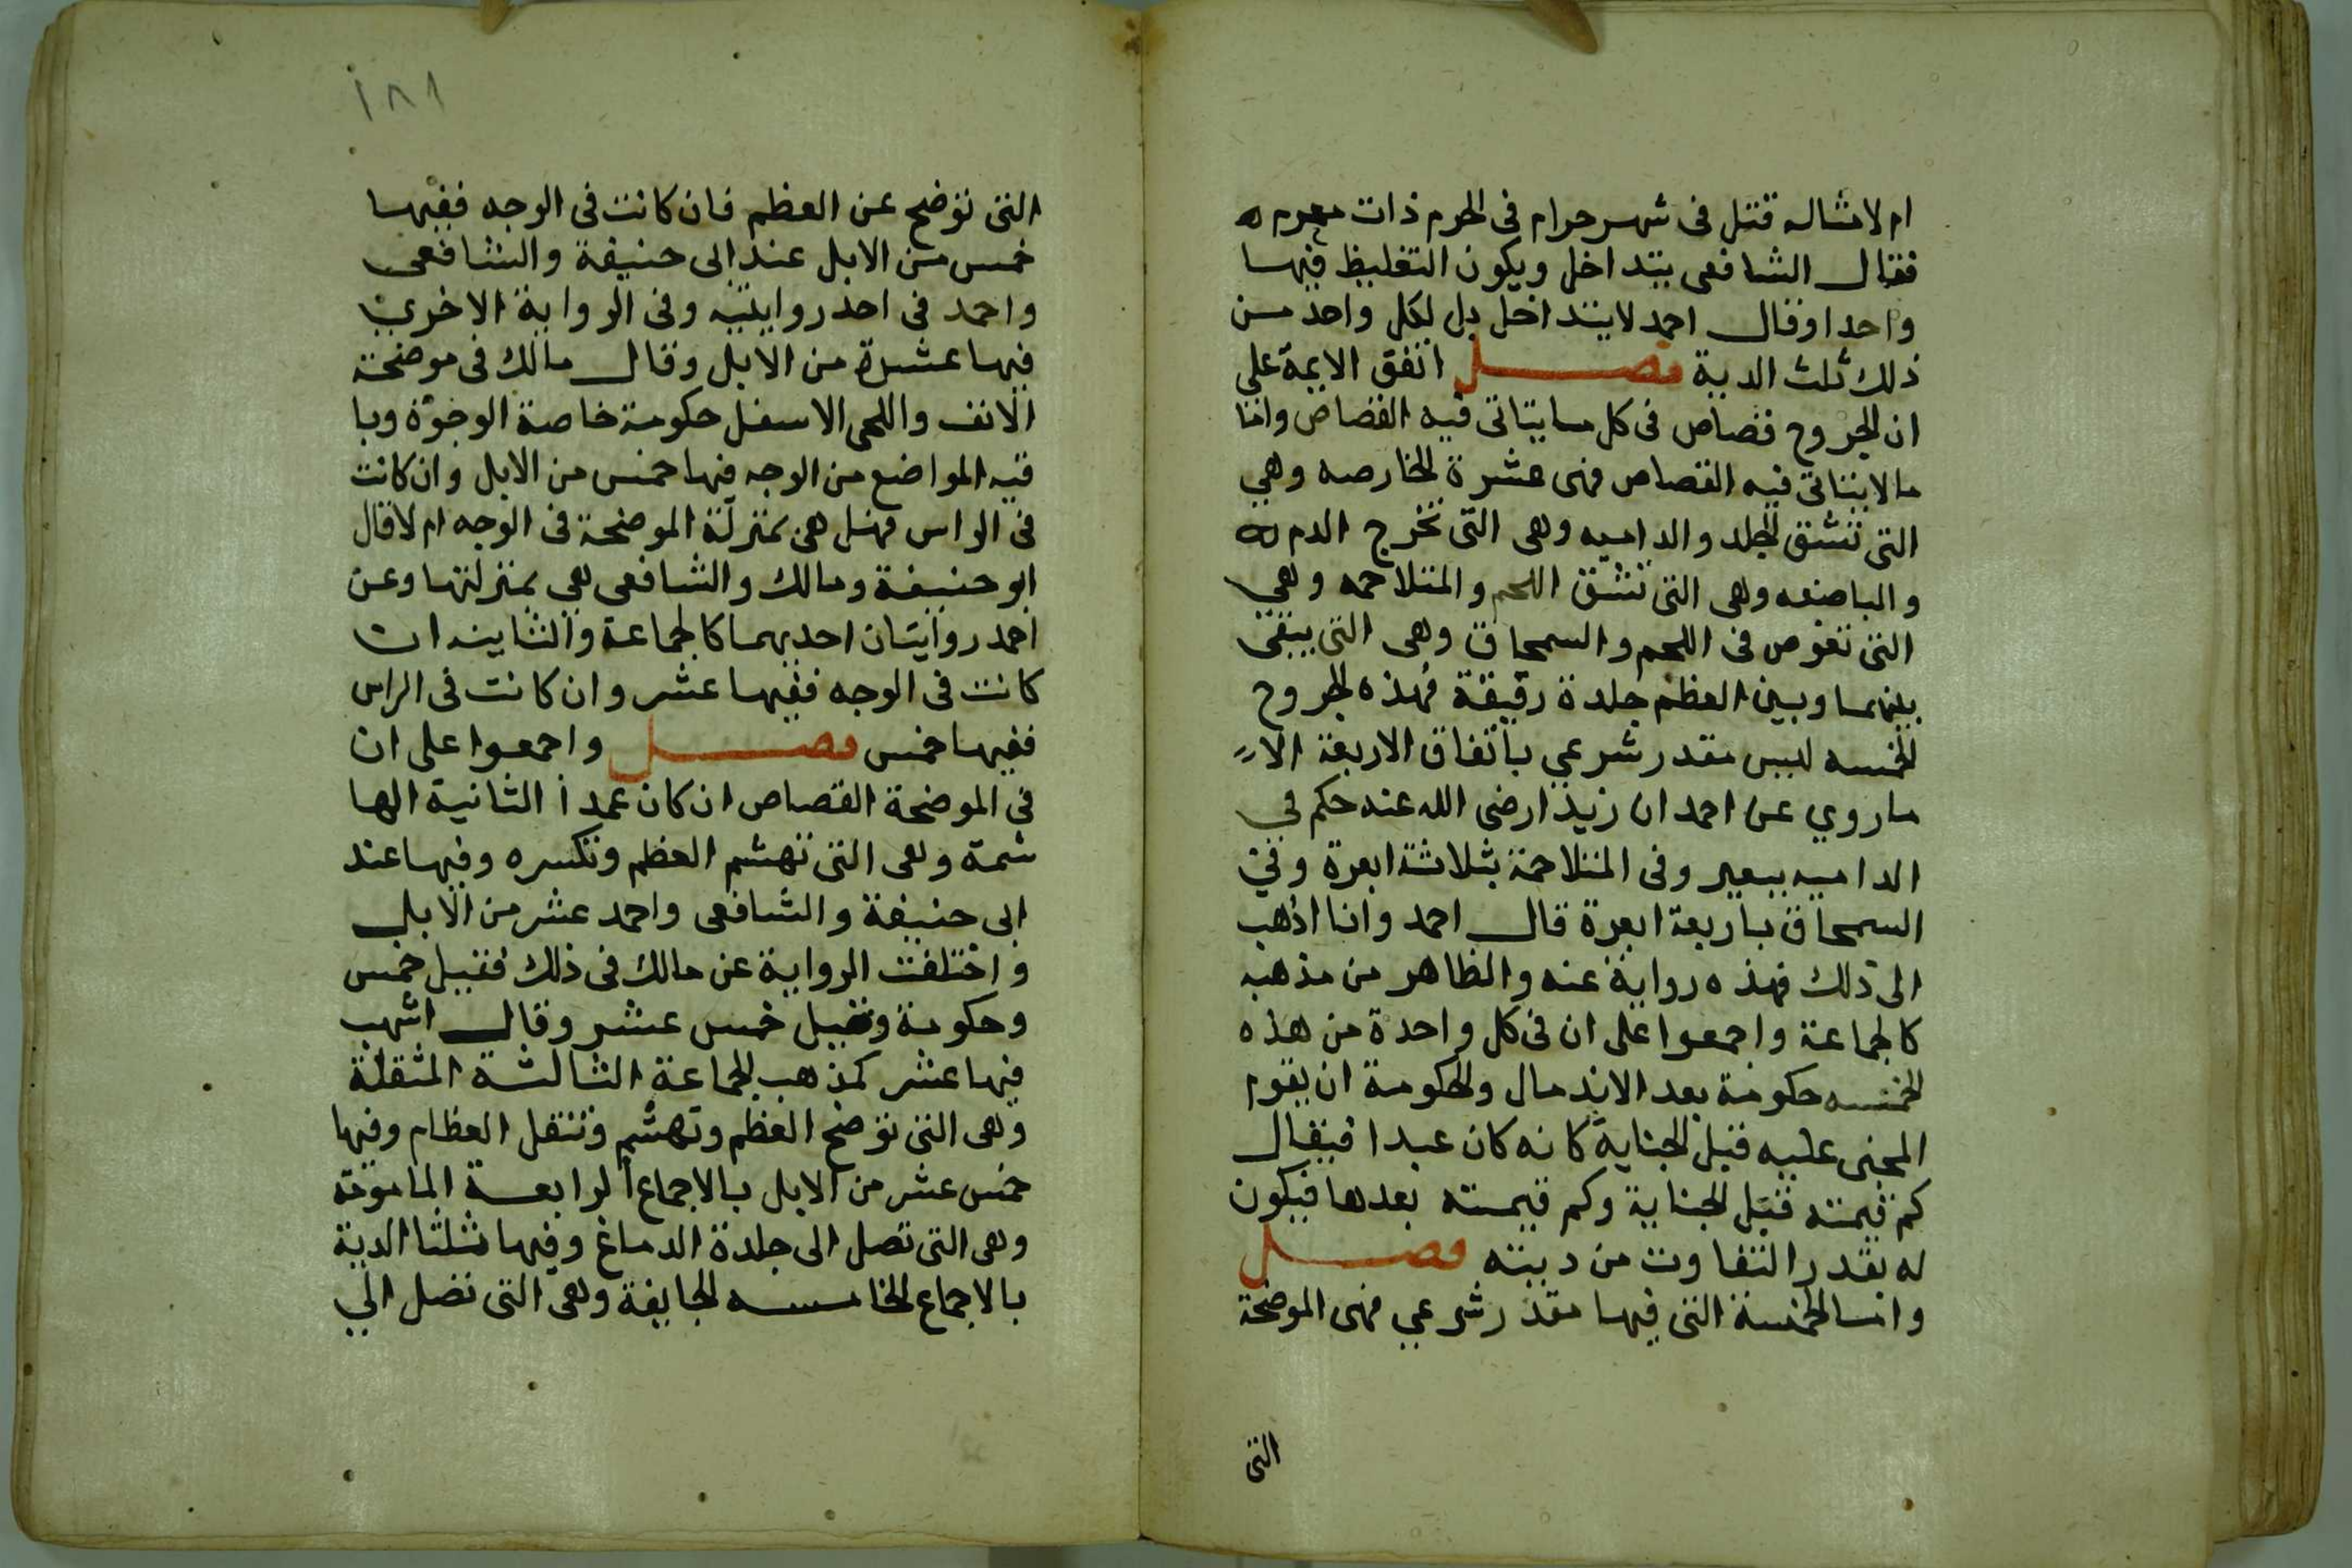 ام لا مثاله قتل فى شهر حرام فى الحرم ذات محرم
فقال الشافعى يتداخل ويكون التغليظ فيها
واحدا وقال احمد لا يتداخل بل لكل واحد من
ذلك ثلث الدية فصل اتفق الايمة على
ان الجروح قصاص فى كل ما يتاتى فيه القصاص واما
ما لا يتاتى فيه القصاص فهى عشرة الخارصه وهي
التى تشق الجلد والداميه وهى التى تخرج الدم
والباضعه وهى التى تشق اللحم والمتلاحمه وهي
التى تغوص فى اللحم والسمحاق وهى التى يبقى
بينهما وبين العظم جلدة رقيقة فهذه الجروح
الخمسه ليس مقدر شرعي باتفاق الاربعة الا
ما روي عن احمد ان زيدا رضى الله عنه حكم في
الداميه ببعير وفى المتلاحمة بثلاثة ابعرة وفي
السمحاق باربعة ابعرة قال احمد وانا اذهب
الى ذلك فهذه رواية عنه والظاهر من مذهبه
كالجماعة واجمعوا على ان فى كل واحدة من هذه
الخمسه حكومة بعد الاندمال والحكومة ان يقوم
المجنى عليه قبل الجناية كانه كان عبدا فيقال
كم قيمته قبل الجناية وكم قيمته بعدها فيكون
له بقدر التفاوت من ديته فصل
واما الخمسة التى فيها مقدر شرعي فهى الموضحة
التى
١٨١
التى توضح عن العظم فان كانت فى الوجه ففيها
خمس من الابل عند ابى حنيفة والشافعى
واحمد فى احد روايتيه وفى الرواية الاخري
فيها عشرة من الابل وقال مالك فى موضحة
الانف واللحى الاسفل حكومة خاصة الوجوة وبا
قيه المواضع من الوجه فيها خمس من الابل وان كانت
فى الراس فهل هى بمنزلة الموضحة فى الوجه ام لا قال
ابو حنيفة ومالك والشافعى هى بمنزلتها وعن
احمد روايتان احديهما كالجماعة والثانيه ان
كانت فى الوجه ففيها عشر وان كانت فى الراس
ففيها خمس فصل واجمعوا على ان
فى الموضحة القصاص ان كان عمدا الثانية الها
شمة وهى التى تهشم العظم وتكسره وفيها عند
ابى حنيفة والشافعى واحمد عشر من الابل
واختلفت الرواية عن مالك فى ذلك فقيل خمس
وحكومة وقيل خمس عشر وقال اشهب
فيها عشر كمذهب الجماعة الثالثة المثقلة
وهى التى توضح العظم وتهشم وتنقل العظام وفيها
خمس عشر من الابل بالاجماع الرابعة المامومة
وهى التى تصل الى جلدة الدماغ وفيها ثلثا الدية
بالاجماع الخامسه الجايفة وهى التى تصل الي